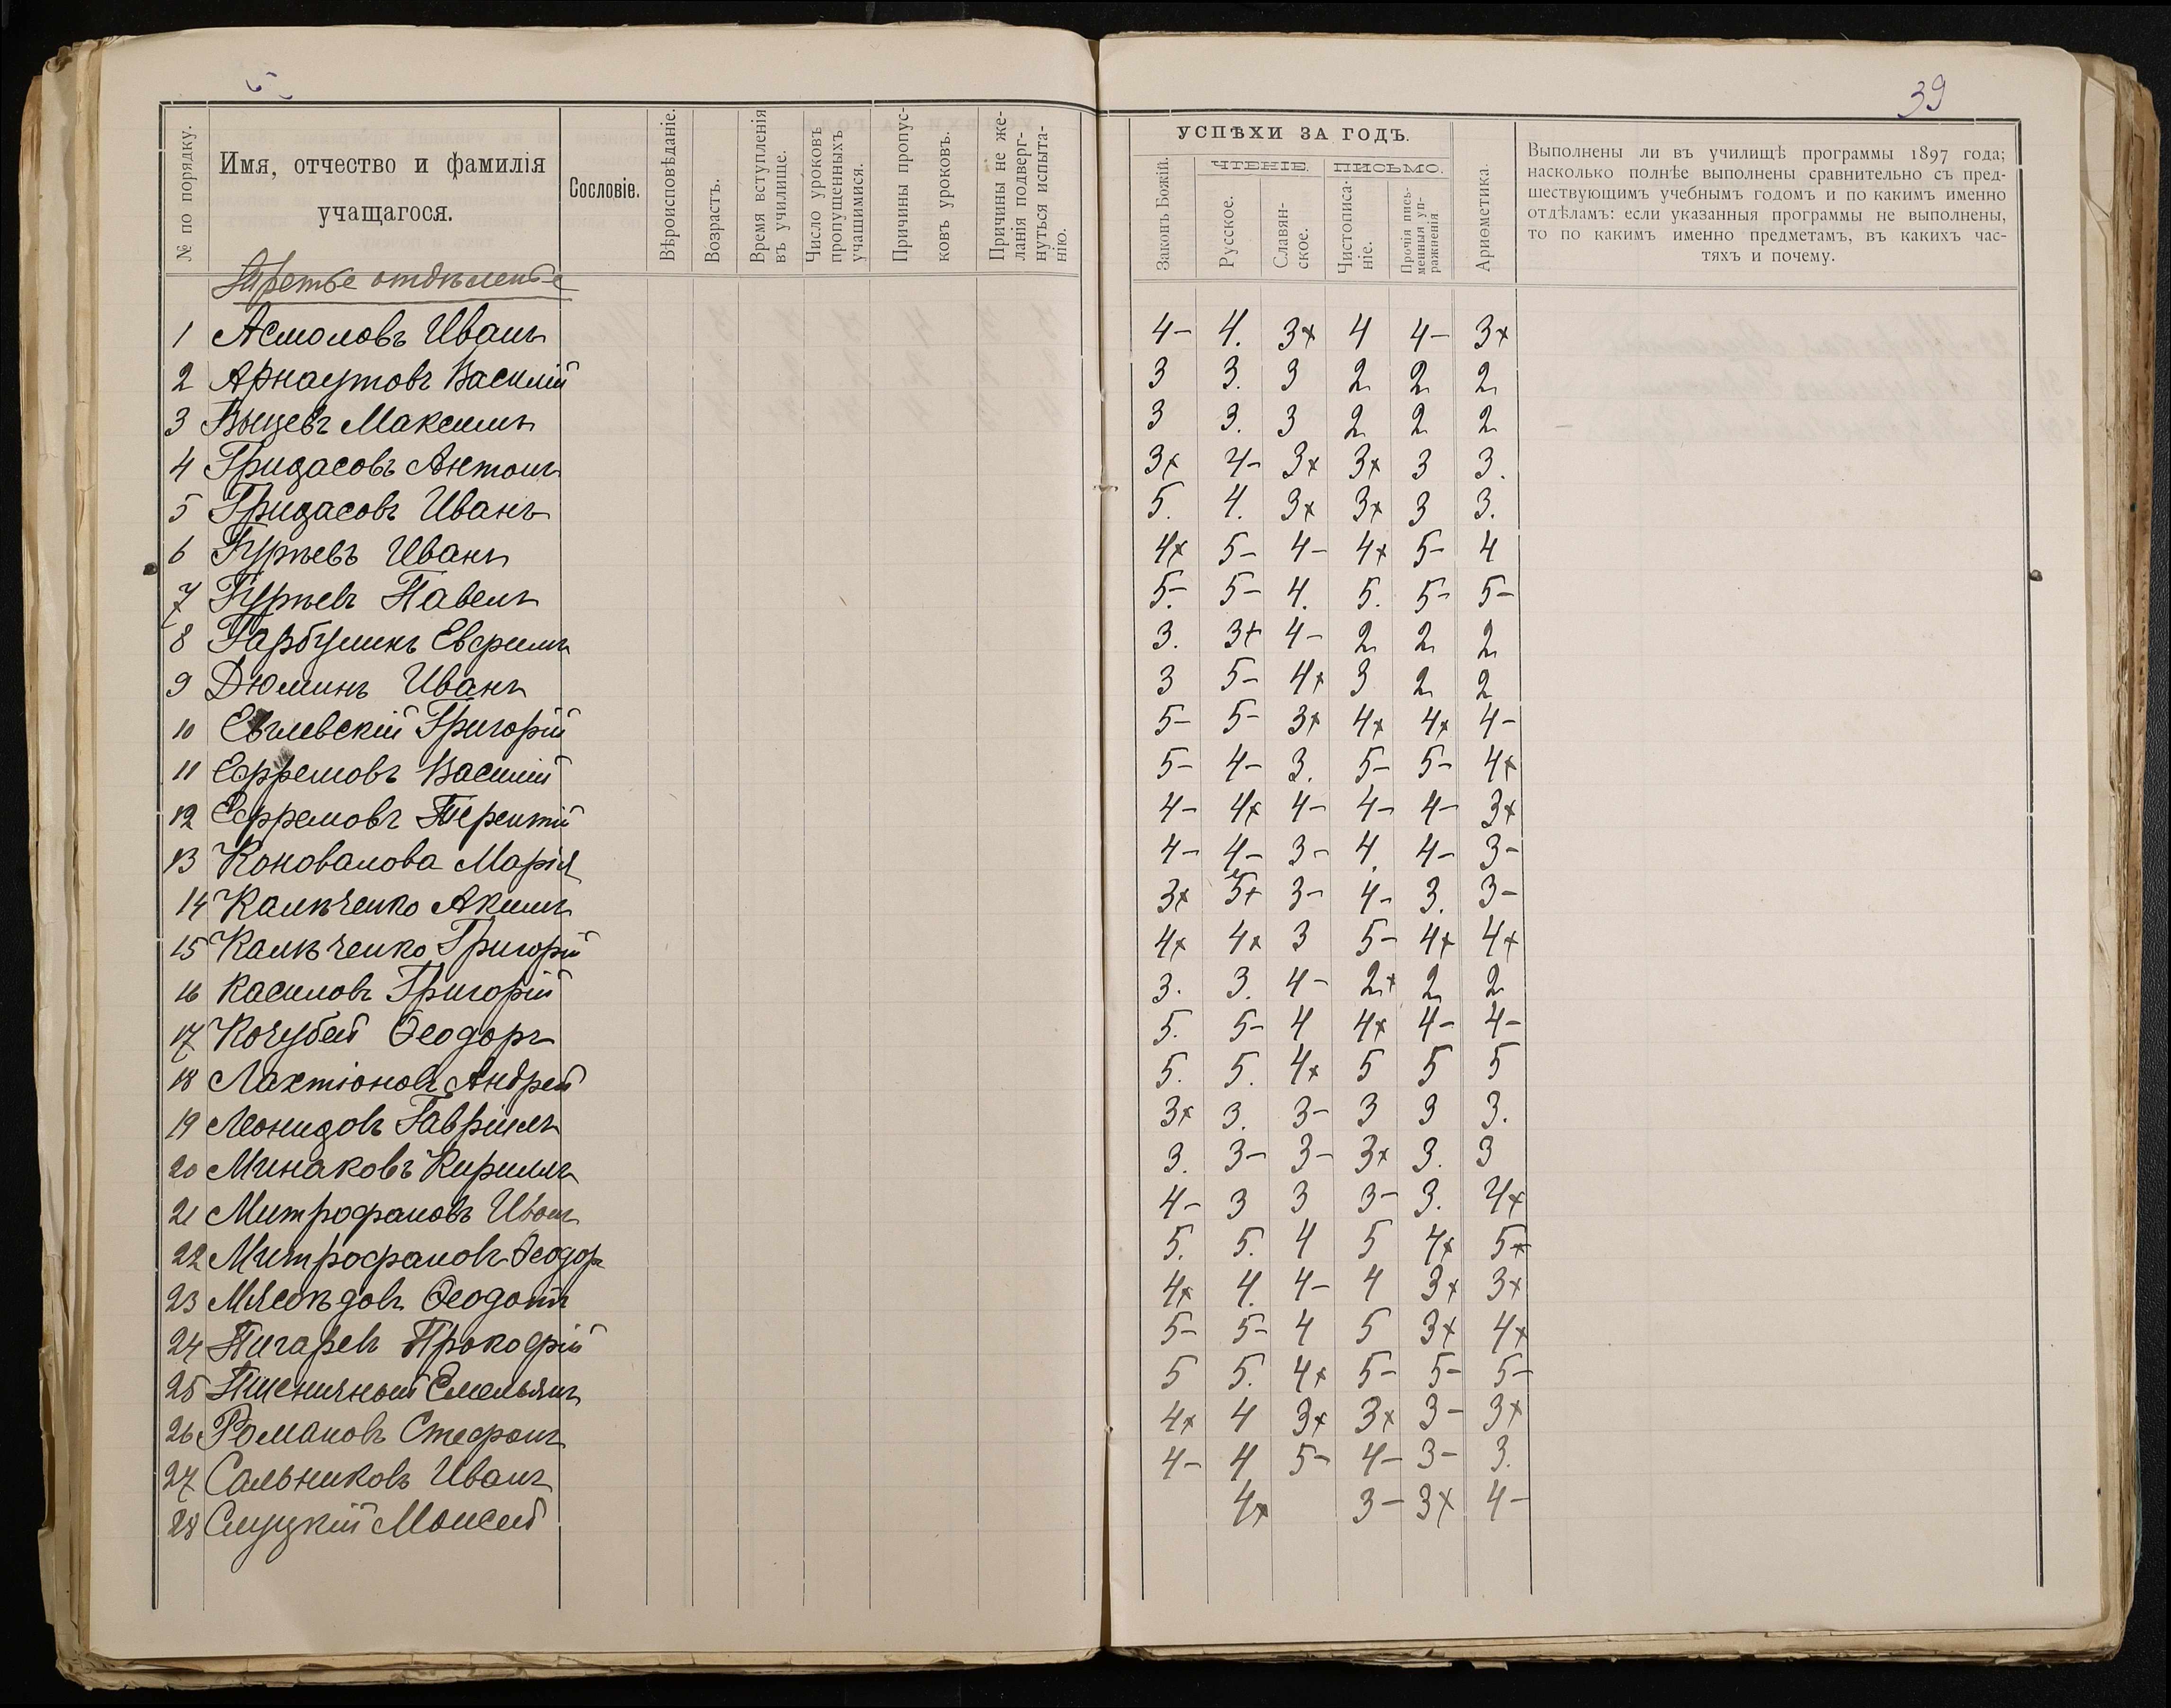 39
№ по порядку.
Имя, отчество и фамилія
учащагося.
Сословіе.
Вѣроисповѣданіе.
Возрастъ.
Время вступленія
въ училище.
Число уроковъ
пропущенныхъ
учащимися.
Причины пропус-
ковъ уроковъ.
Причины не же-
ланія подверг-
нуться испыта-
нію.
УСПѢХИ ЗА ГОДЪ.
Законъ Божій.
ЧТЕНІЕ.
Русское.
Славян-
ское.
ПИСЬМО.
Чистописа-
ніе.
Прочія пись-
менныя уп-
ражненія
Ариѳметика.
Выполнены ли въ училищѣ программы 1897 года;
насколько полнѣе выполнены сравнительно съ пред-
шествующимъ учебнымъ годомъ и по какимъ именно
отдѣламъ: если указанныя программы не выполнены,
то по какимъ именно предметамъ, въ какихъ час-
тяхъ и почему.
Третье отдѣленье
1 Асмоловъ Иванъ 4- 4. 3+ 4 4- 3+
2 Арнаутовъ Василій 3 3. 3 2 2 2
3 Выцевъ Максимъ 3 3. 3 2 2 2
4 Гридасовъ Антонъ 3+ 4- 3+ 3+ 3 3.
5 Гридасовъ Иванъ 5. 4. 3+ 3+ 3 3.
6 Гурьевъ Иванъ 4+ 5- 4- 4+ 5- 4
7 Гурьевъ Павелъ 5- 5- 4. 5. 5- 5-
8 Гарбузинъ Евфимъ 3. 3+ 4- 2 2 2
9 Дюминъ Иванъ 3 5- 4+ 3 2 2
10 Евглевскій Григорій 5- 5- 3+ 4+ 4+ 4-
11 Ефремовъ Василій 5- 4- 3. 5- 5- 4+
12 Ефремовъ Терентій 4- 4+ 4- 4- 4- 3+
13 Коновалова Марія 4- 4- 3- 4. 4- 3-
14 Каличенко Акимъ 3+ 5+ 3- 4- 3. 3-
15 Каличенко Григорій 4+ 4+ 3 5- 4+ 4+
16 Касиловъ Григорій 3. 3. 4- 2+ 2 2
17 Кочубей Ѳеодоръ 5. 5- 4 4+ 4- 4-
18 Лактіоновъ Андрей 5. 5. 4+ 5 5 5
19 Леонидовъ Гавріилъ 3+ 3. 3- 3 3 3.
20 Минаковъ Кириллъ 3. 3- 3- 3+ 3. 3
21 Митрофановъ Иванъ 4- 3 3 3- 3. 4+
22 Митрофановъ Ѳеодоръ 5. 5. 4 5 4+ 5+
23 Мясоѣдовъ Ѳеодотъ 4+ 4. 4- 4 3+ 3+
24 Пигаревъ Прокофій 5- 5- 4 5 3+ 4+
25 Пшеничный Емельянъ 5 5. 4+ 5- 5- 5-
26 Романовъ Стефанъ 4+ 4 3+ 3+ 3- 3+
27 Сальниковъ Иванъ 4- 4 5- 4- 3- 3.
28 Слуцкій Моисей 4+ 3- 3+ 4-